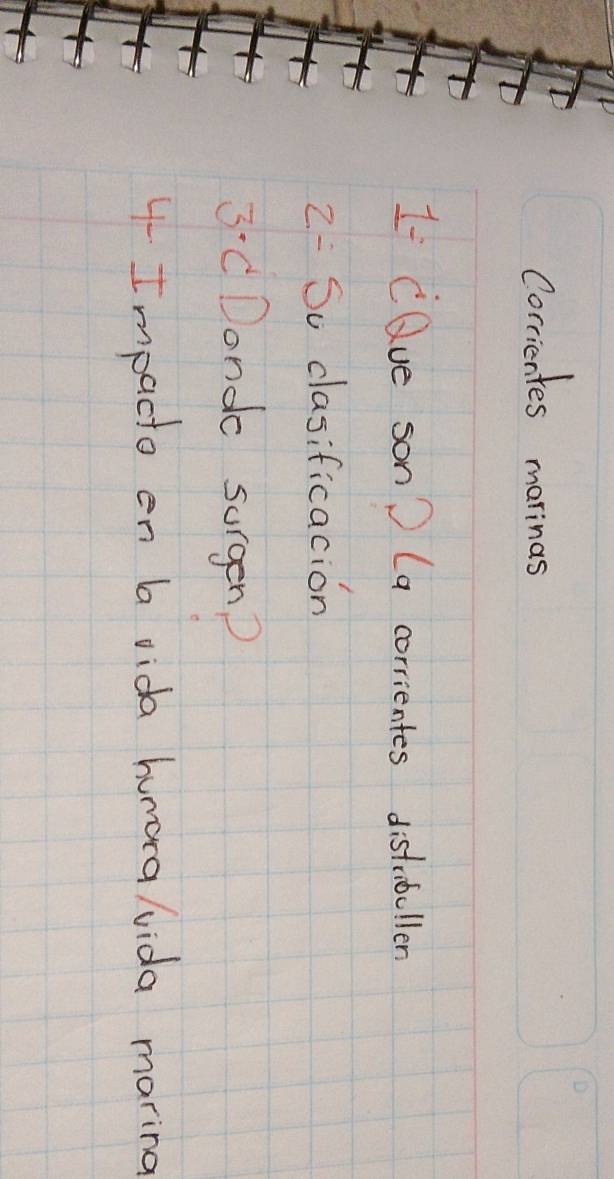 Corrientes marinas
1.- ¿Que son? La corrientes distribullen
2.- Su clasificación
3.- ¿Donde surgen?
4.- Impacto en la vida humana/vida marina